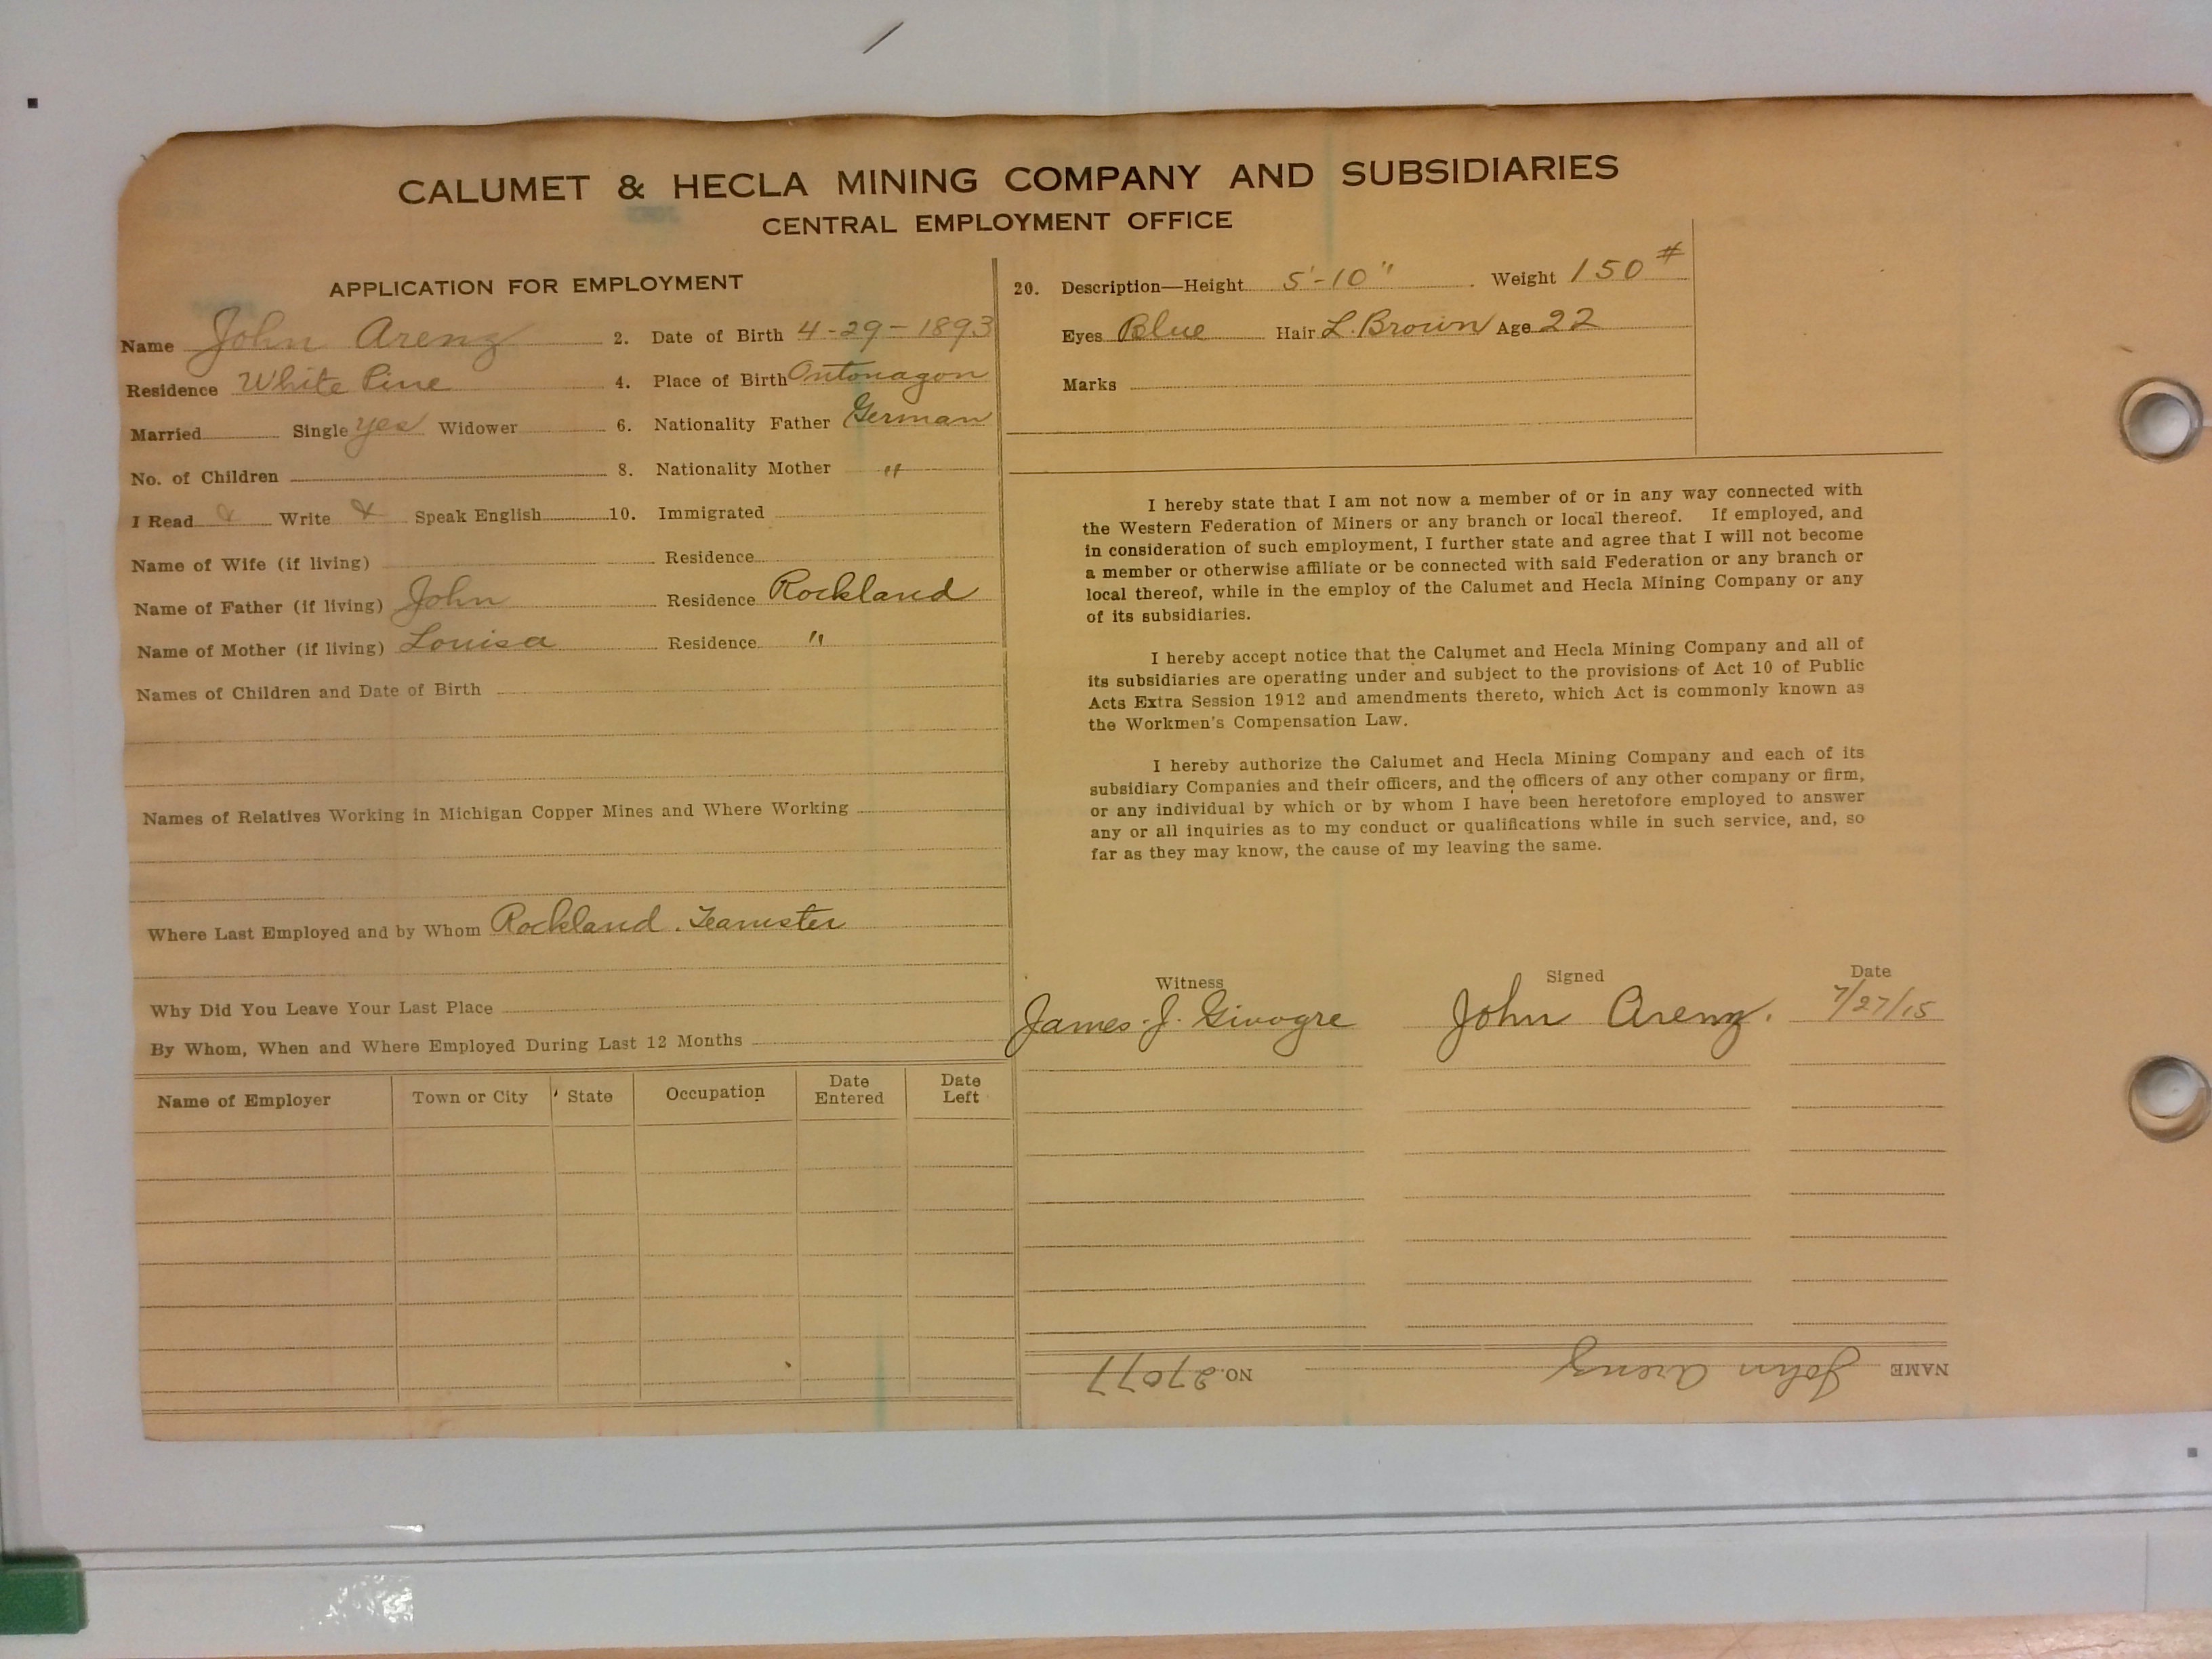 CALUMET & HECLA MINING COMPANY AND SUBSIDIARIES
CENTRAL EMPLOYMENT OFFICE
APPLICATION FOR EMPLOYMENT
Name John Arenz 2. Date of Birth 4-29-1893
Residence White Pine 4. Place of Birth Ontonagon
Married Single yes Widower 6. Nationality Father German
No. of Children 8. Nationality Mother "
I Read Write Speak English 10. Immigrated
Name of Wife (if living) Residence
Name of Father (if living) John Residence Rockland
Name of Mother (if living) Louisa Residence "
Names of Children and Date of Birth
Names of Relatives Working in Michigan Copper Mines and Where Working
Where Last Employed and by Whom Rockland. Teamster
Why Did You Leave Your Last Place
By Whom, When and Where Employed During Last 12 Months
Name of Employer Town or City State Occupation Date Entered Date Left
20. Description—Height 5'-10" Weight 150#
Eyes Blue Hair L. Brown Age 22
Marks
I hereby state that I am not now a member of or in any way connected with
the Western Federation of Miners or any branch or local thereof. If employed, and
in consideration of such employment, I further state and agree that I will not become
a member or otherwise affiliate or be connected with said Federation or any branch or
local thereof, while in the employ of the Calumet and Hecla Mining Company or any
of its subsidiaries.
I hereby accept notice that the Calumet and Hecla Mining Company and all of
its subsidiaries are operating under and subject to the provisions of Act 10 of Public
Acts Extra Session 1912 and amendments thereto, which Act is commonly known as
the Workmen's Compensation Law.
I hereby authorize the Calumet and Hecla Mining Company and each of its
subsidiary Companies and their officers, and the officers of any other company or firm,
or any individual by which or by whom I have been heretofore employed to answer
any or all inquiries as to my conduct or qualifications while in such service, and, so
far as they may know, the cause of my leaving the same.
Witness Signed Date
James. J. Givogre John Arenz. 7/27/15
NAME John Arenz NO. 27077